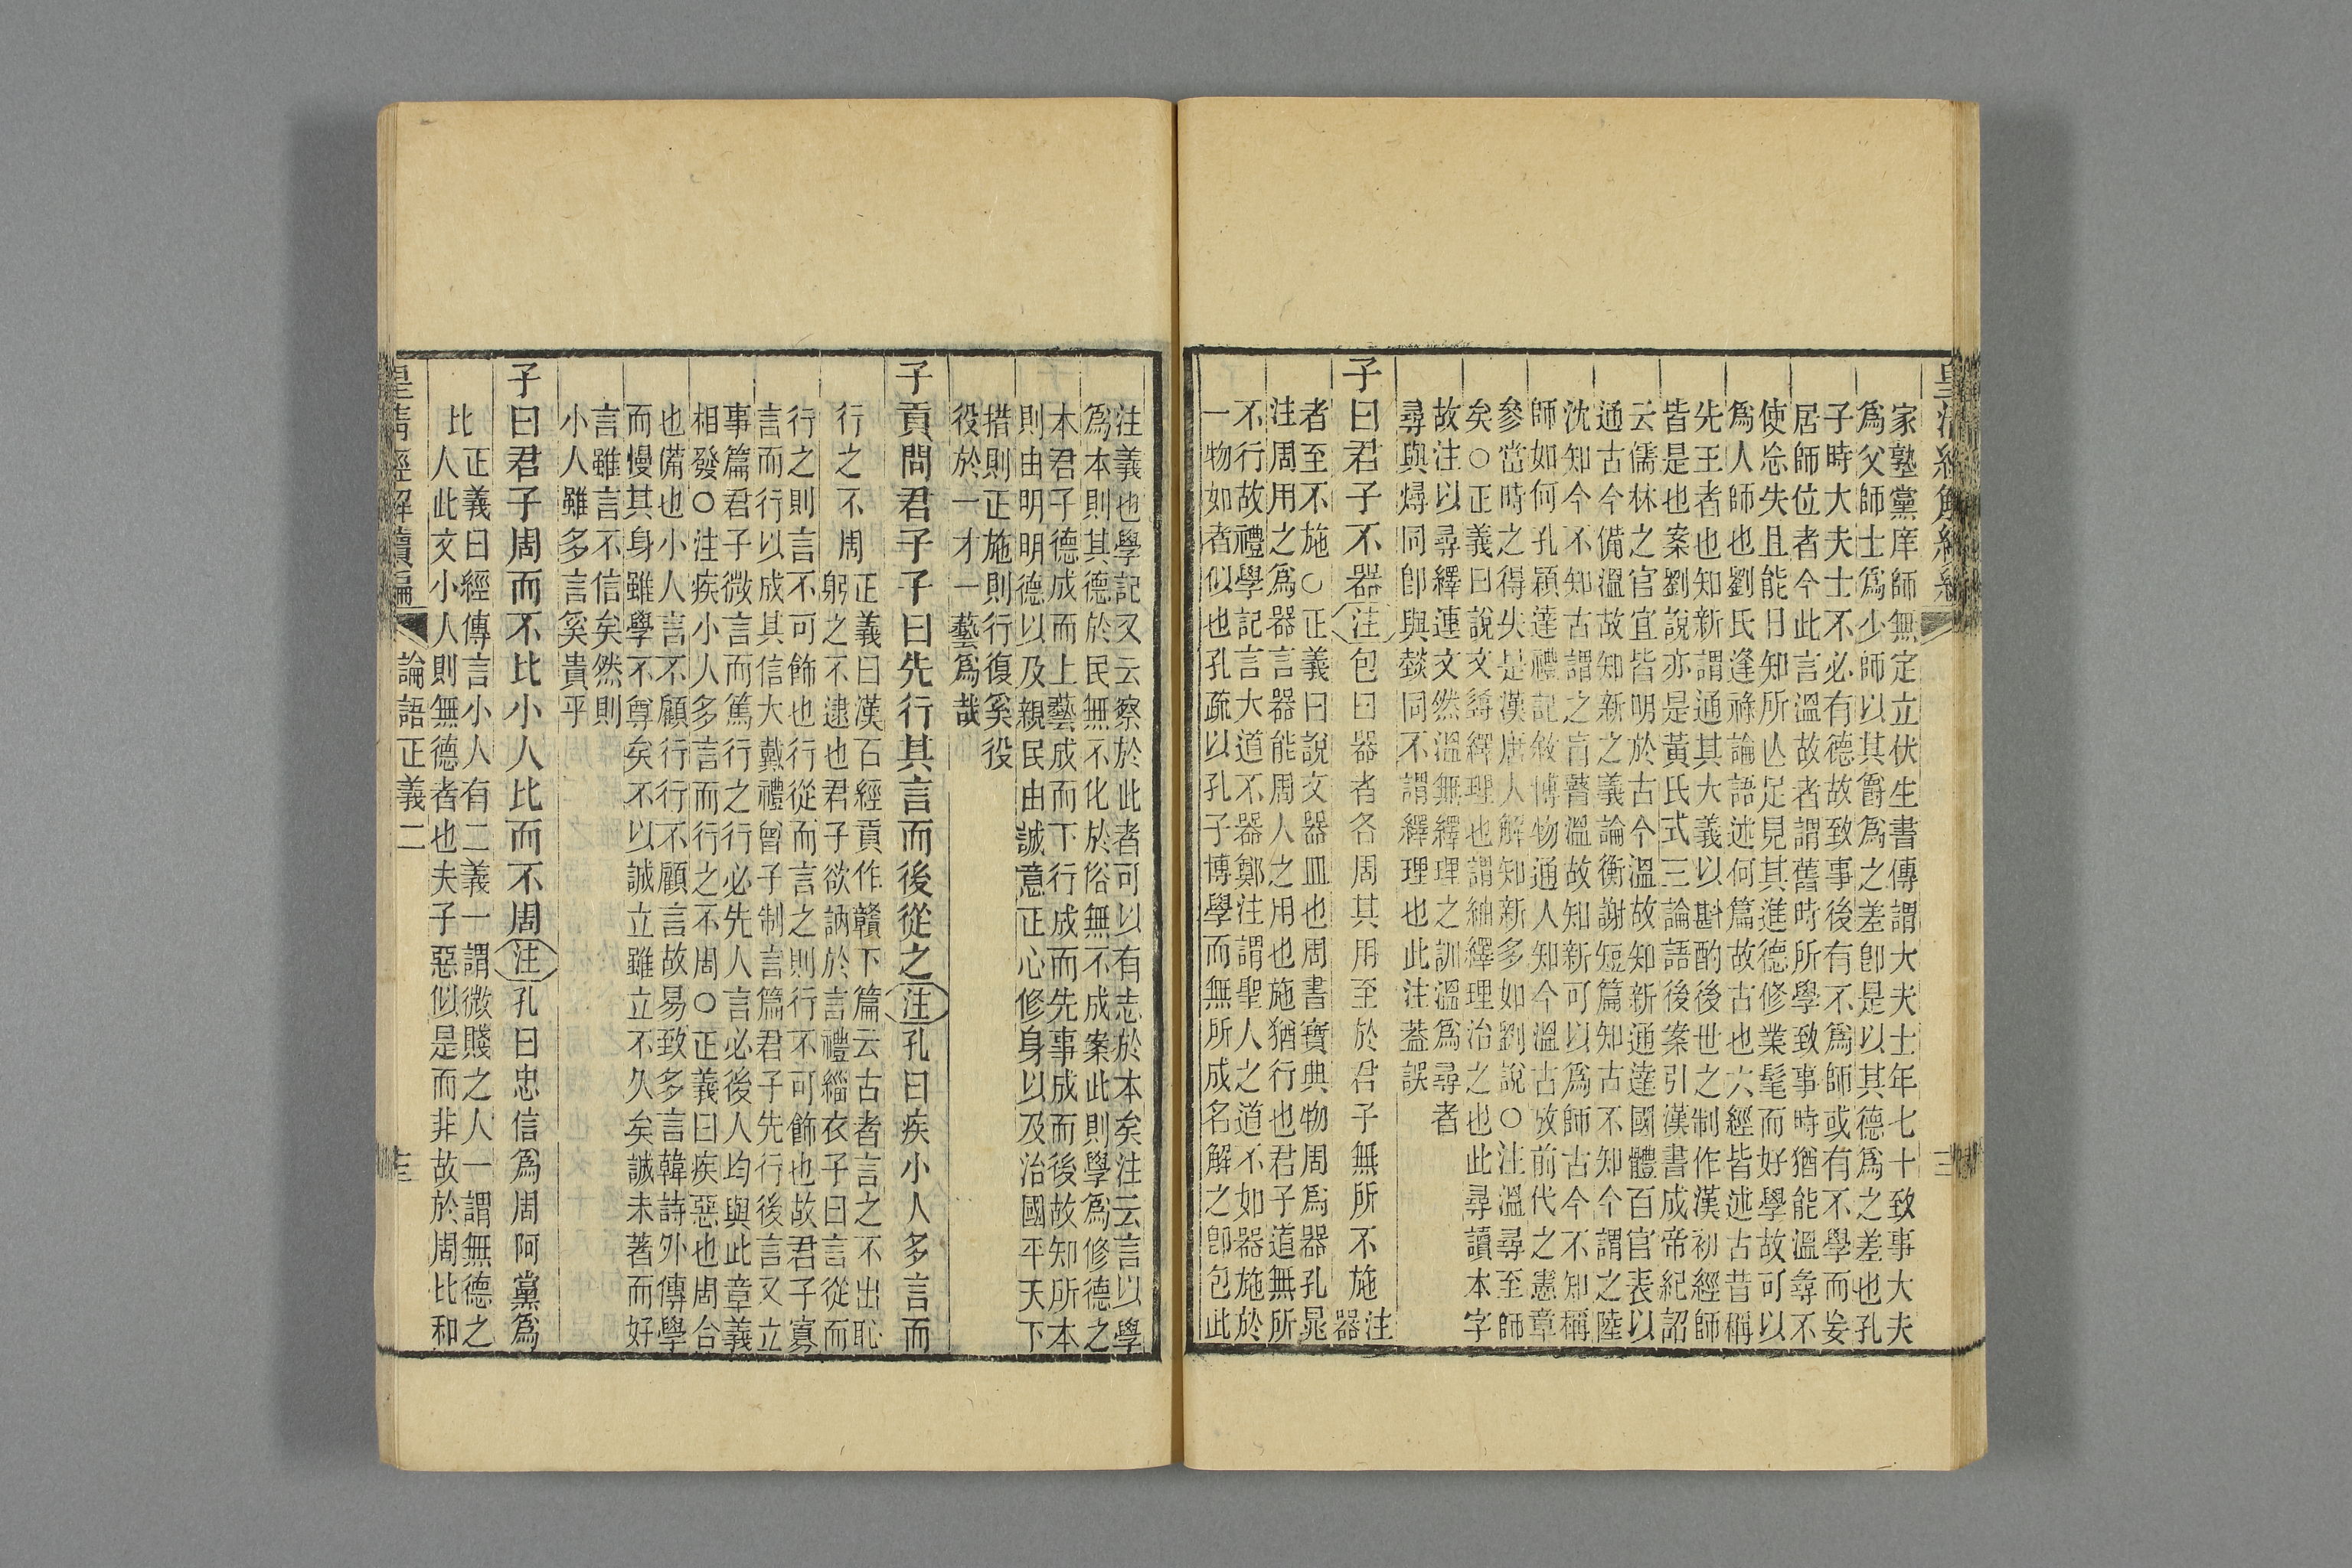 皇清經解續編
三
家塾黨庠師無定立伏生書傳謂大夫士年七十致事大夫
爲父師士爲少師以其爵爲之差卽是以其德爲之差也孔
子時大夫士不必有德故致事後有不爲師或有不學而妄
居師位者今此言溫故者謂舊時所學致事時猶能溫尋不
使忘失且能日知所亡足見其進德修業髦而好學故可以
爲人師也劉氏逢祿論語述何篇故古也六經皆述古昔稱
先王者也知新謂通其大義以斟酌後世之制作漢初經師
皆是也案劉說亦是黃氏式三論語後案引漢書成帝紀詔
云儒林之官宜皆明於古今溫故知新通達國體百官表以
通古今備溫故知新之義論衡謝短篇知古不知今謂之陸
沈知今不知古謂之盲瞽溫故知新可以爲師古今不知稱
師如何孔穎達禮記敘博物通人知今溫古攷前代之憲章
參當時之得失是漢唐人解知新多如劉說○注溫尋至師
矣○正義曰說文繹理也謂紬繹理治之也此尋讀本字
故注以尋繹連文然溫無繹理之訓溫爲尋者
尋與燖同卽與燅同不謂繹理也此注蓋誤
子曰君子不器注包曰器者各周其用至於君子無所不施注器
者至不施○正義曰說文器皿也周書寶典物周爲器孔晁
注周用之爲器言器能周人之用也施猶行也君子道無所
不行故禮學記言大道不器鄭注謂聖人之道不如器施於
一物如者似也孔疏以孔子博學而無所成名解之卽包此
注義也學記又云察於此者可以有志於本矣注云言以學
爲本則其德於民無不化於俗無不成案此則學爲修德之
本君子德成而上藝成而下行成而先事成而後故知所本
則由明明德以及親民由誠意正心修身以及治國平天下
措則正施則行復奚役
役於一才一藝爲哉
子貢問君子子曰先行其言而後從之注孔曰疾小人多言而
行之不周正義曰漢石經貢作贛下篇云古者言之不出恥
躬之不逮也君子欲訥於言禮緇衣子曰言從而
行之則言不可飾也行從而言之則行不可飾也故君子寡
言而行以成其信大戴禮曾子制言篇君子先行後言又立
事篇君子微言而篤行之行必先人言必後人均與此章義
相發○注疾小人多言而行之不周○正義曰疾惡也周合
也備也小人言不顧行行不顧言故易致多言韓詩外傳學
而慢其身雖學不尊矣不以誠立雖立不久矣誠未著而好
言雖言不信矣然則
小人雖多言奚貴乎
子曰君子周而不比小人比而不周注孔曰忠信爲周阿黨爲
比正義曰經傳言小人有二義一謂微賤之人一謂無德之
人此文小人則無德者也夫子惡似是而非故於周比和
皇清經解續編
論語正義二